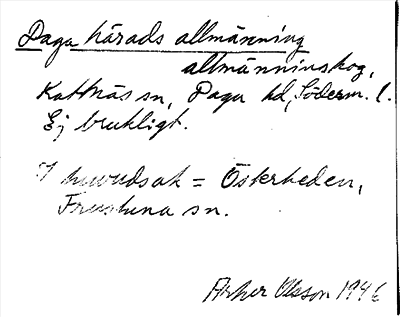 Daga härads allmänning
allmänninskog,
Kattnäs sn, Daga hd, Söderm. l.
Ej brukligt.
I huvudsak = Österheden,
Frustuna sn.
Olsson 1946